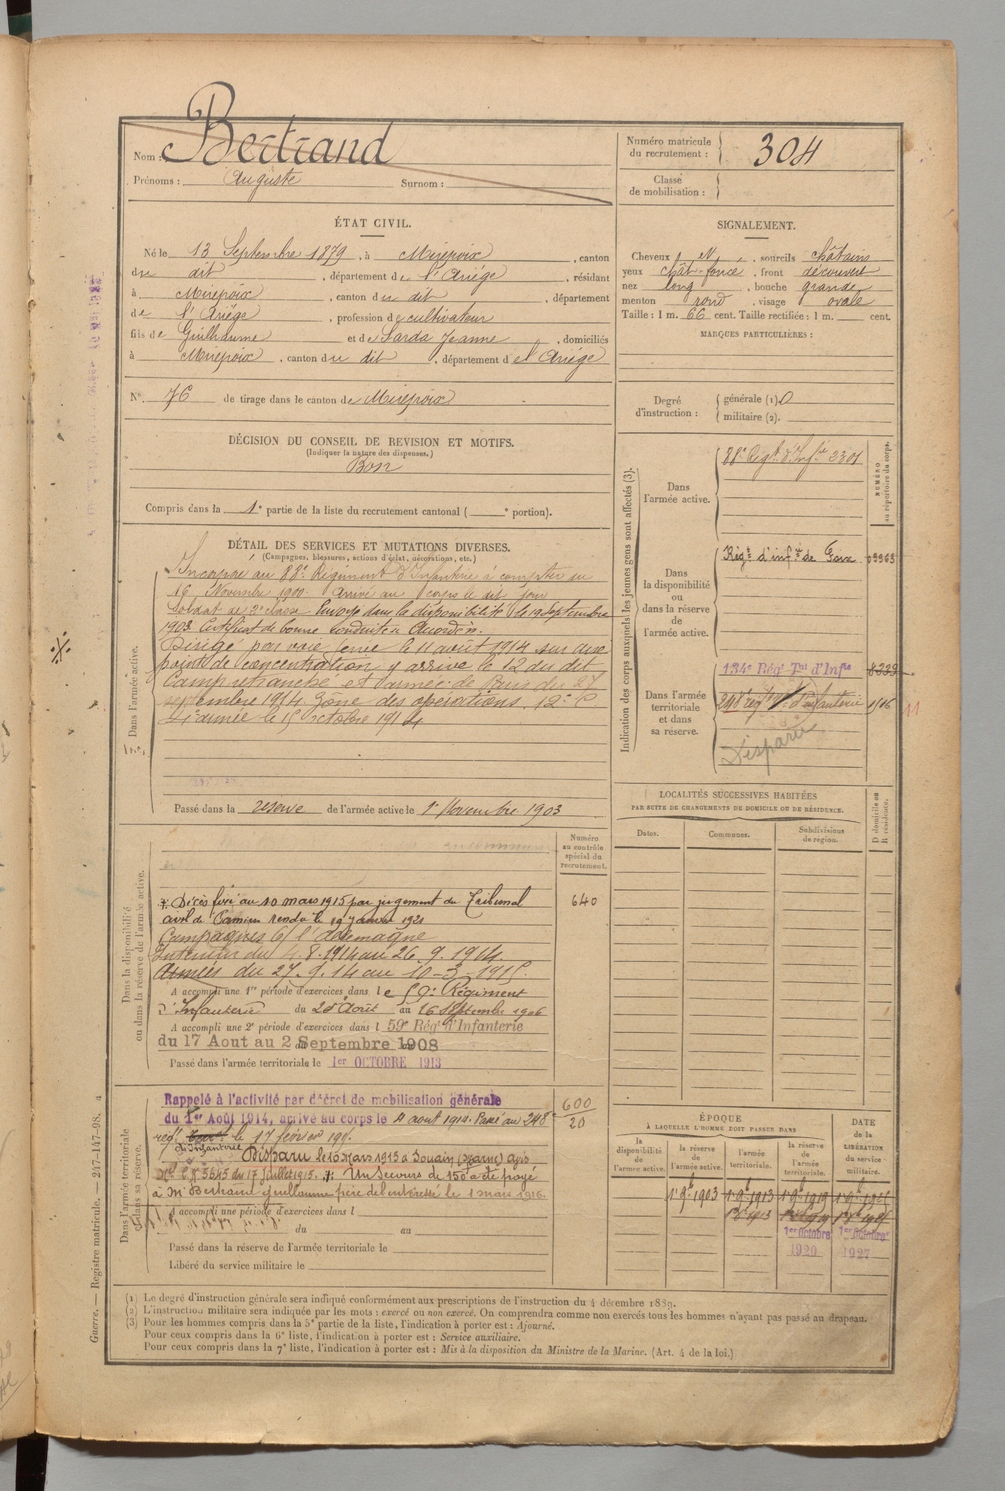 Nom : Bertrand
Prénoms : Auguste Surnom :
Numéro matricule du recrutement : 304
Classe de mobilisation :
ÉTAT CIVIL.
Né le 13 Septembre 1879, à Mirepoix, canton
du dit, département de l'Ariège, résidant
à Mirepoix, canton du dit, département
de l'Ariège, profession de cultivateur
fils de Guilhaume et de Sarda Jeanne, domiciliés
à Mirepoix, canton du dit, département de l'Ariège
N° 76 de tirage dans le canton de Mirepoix
DÉCISION DU CONSEIL DE REVISION ET MOTIFS.
(Indiquer la nature des dispenses.)
Bon
Compris dans la 1e partie de la liste du recrutement cantonal ( e portion).
SIGNALEMENT.
Cheveux N, sourcils châtains
yeux chât. foncé, front découvert
nez long, bouche grande
menton rond, visage ovale
Taille : 1 m. 66 cent. Taille rectifiée : 1 m. cent.
MARQUES PARTICULIÈRES :
Degré d'instruction : générale (1) 0
militaire (2).
DÉTAIL DES SERVICES ET MUTATIONS DIVERSES.
(Campagnes, blessures, actions d'éclat, décorations, etc.)
Dans l'armée active.
Incorporé au 88e Régiment d'Infanterie à compter du
16 Novembre 1900. Arrivé au corps le dit jour
Soldat de 2e classe Envoyé dans la disponibilité le 19 Septembre
1903. Certificat de bonne conduite Accordé.
Dirigé par voie ferrée le 11 août 1914 sur un
point de concentration y arrive le 12 du dit
Camp retranché et armée de Paris du 27
septembre 1914 Zône des opérations. 12e C.
4e armée le 15 octobre 1914
Passé dans la réserve de l'armée active le 1er Novembre 1903
Indication des corps auxquels les jeunes gens sont affectés (3).
NUMÉRO au répertoire du corps.
Dans l'armée active. 88e Régt d'Infie 2301
Dans la disponibilité ou dans la réserve de l'armée active. Régt d'infie de Foix 03963
Dans l'armée territoriale et dans sa réserve. 134e Régt Tal d'Infie
248e régt d'Infanterie
11
Disparu
LOCALITÉS SUCCESSIVES HABITÉES
PAR SUITE DE CHANGEMENTS DE DOMICILE OU DE RÉSIDENCE.
Dates. Communes. Subdivisions de région. D domicile ou R résidence.
Numéro au contrôle spécial du recrutement.
Dans la disponibilité ou dans la réserve de l'armée active.
* Décès fixé au 10 mars 1915 par jugement du Tribunal 640
civil de Pamiers rendu le 19 janvier 1921
Campagnes c/ l'Allemagne
Intérieur du 4.8.1914 au 26.9.1914
Armées du 27.9.14 au 10-3-1915
A accompli une 1re période d'exercices dans le 59e Régiment
d'Infanterie du 20 Août au 16 Septembre 1906
A accompli une 2e période d'exercices dans l 59e Régt d'Infanterie
du 17 Aout au 2 Septembre 1908
Passé dans l'armée territoriale le 1er OCTOBRE 1913
Dans l'armée territoriale et dans sa réserve.
Rappelé à l'activité par décret de mobilisation générale 600
du 1er Août 1914, arrivé au corps le 4 août 1914. Passé au 248e 20
régt le 17 février 191
d'Infanterie
Disparu le 10 mars 1915 à Souain (Marne) avis
5645 du 17 juillet 1915. * Un Secours de 150 a été payé
à Mr Bertrand Guilhaume père de l'intéressé le 1 mars 1916.
A accompli une période d'exercices dans l
du au
Passé dans la réserve de l'armée territoriale le
Libéré du service militaire le
ÉPOQUE
À LAQUELLE L'HOMME DOIT PASSER DANS
la disponibilité de l'armée active. la réserve de l'armée active. l'armée territoriale. la réserve de l'armée territoriale. DATE de la LIBÉRATION du service militaire.
1er 9b 1903 1er 9b 1913 1er 9b 1919
1er Octobre 1920 1er Octobre 1927
(1) Le degré d'instruction générale sera indiqué conformément aux prescriptions de l'instruction du 4 décembre 1889.
(2) L'instruction militaire sera indiquée par les mots : exercé ou non exercé. On comprendra comme non exercés tous les hommes n'ayant pas passé au drapeau.
(3) Pour les hommes compris dans la 5e partie de la liste, l'indication à porter est : Ajourné.
Pour ceux compris dans la 6e liste, l'indication à porter est : Service auxiliaire.
Pour ceux compris dans la 7e liste, l'indication à porter est : Mis à la disposition du Ministre de la Marine. (Art. 4 de la loi.)
Guerre. — Registre matricule. — 247-147-98.